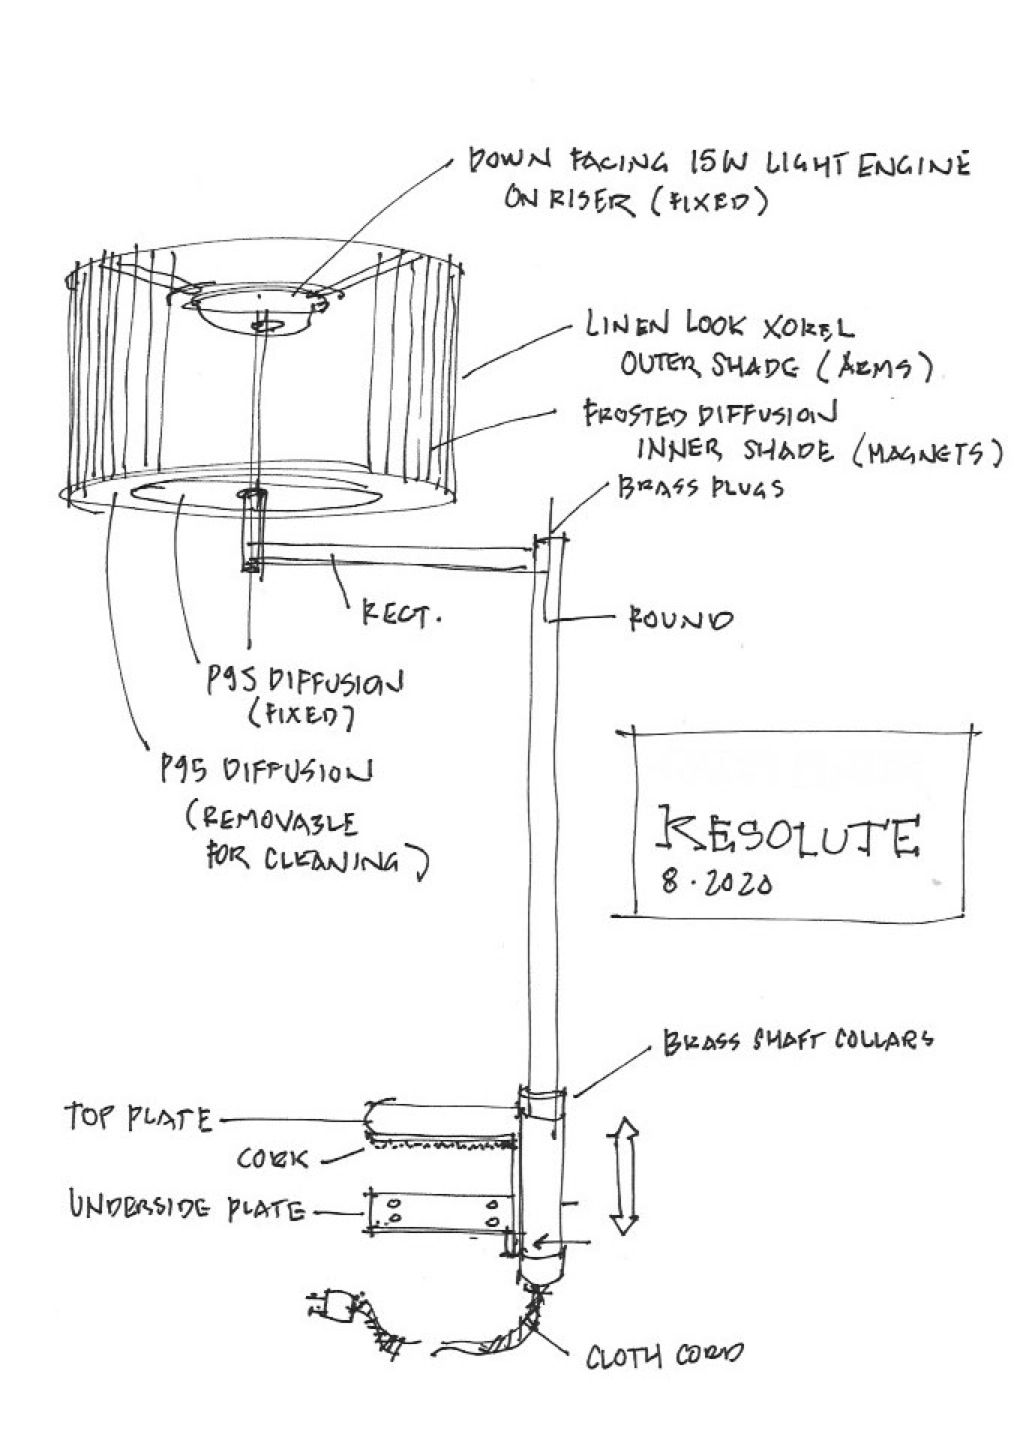 DOWN FACING 15W LIGHT ENGINE
ON RISER (FIXED)
LINEN LOOK XOREL
OUTER SHADE (ARMS)
FROSTED DIFFUSION
INNER SHADE (MAGNETS)
BRASS PLUGS
RECT.
ROUND
P95 DIFFUSION
(FIXED)
P95 DIFFUSION
(REMOVABLE
FOR CLEANING)
RESOLUTE
8.2020
BRASS SHAFT COLLARS
TOP PLATE
CORK
UNDERSIDE PLATE
CLOTH CORD